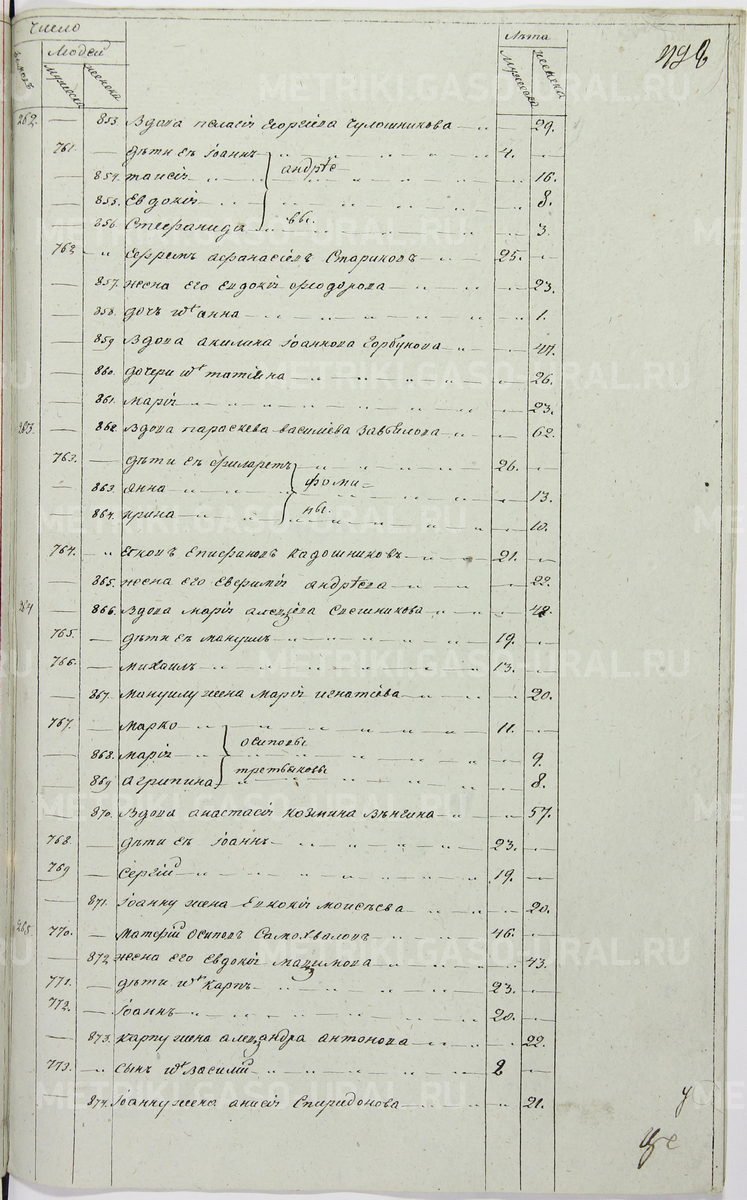 Число
Лѣта
Людей
мужеска
женска
мужеска
женска
262. 853. Вдова пеласіѧ Георгіева Чулошникова 29.
761. дѣти еѧ Іоаннъ 4.
андрѣе
854. таисіѧ 16.
855. Евдокіѧ 8.
вы.
856 Стефанида 3.
762 Ефремъ афанасіевъ Стариковъ 25.
857. жена его Евдокіѧ феодорова 23.
858. дочь ихъ анна 1.
859 Вдова акилина Іоаннова Горбунова 44.
860. дочери ихъ татіѧна 26.
861. маріѧ 23.
263. 862 Вдова параскева васильева Завьялова 62.
763. дѣти еѧ филаретъ 26.
фоми=
863. Анна 13.
864. ирина ны. 10.
764. Епифановъ Кадошниковъ 21.
865. жена его Евфиміѧ андрѣева 22.
264 866. Вдова маріѧ алеѯѣева Свешникова 48.
765. дѣти еѧ мануилъ 19.
766. михаилъ 13.
867. Мануилу жена маріѧ игнатьева 20.
767. Марко 11.
осиповы
868. маріѧ 9.
третьѧковы
869 агрипина 8.
870. Вдова анастасіѧ козмина Вѧткина 57.
768. дѣти еѧ Іоаннъ 23.
769 Сергій 19.
871. Іоанну жена Евдокіѧ моисѣева 20.
265. 770. матфей осиповъ Самохваловъ 46.
872 жена его Евдокіѧ маѯимова 43.
771. дѣти ихъ карпъ 23.
772. Іоаннъ 20.
873. карпу жена алеѯандра антонова 22.
773. сынъ ихъ василий 2
874. Іоанну жена анисіѧ Спиридонова 21.
METRIKI.GASO-URAL.RU